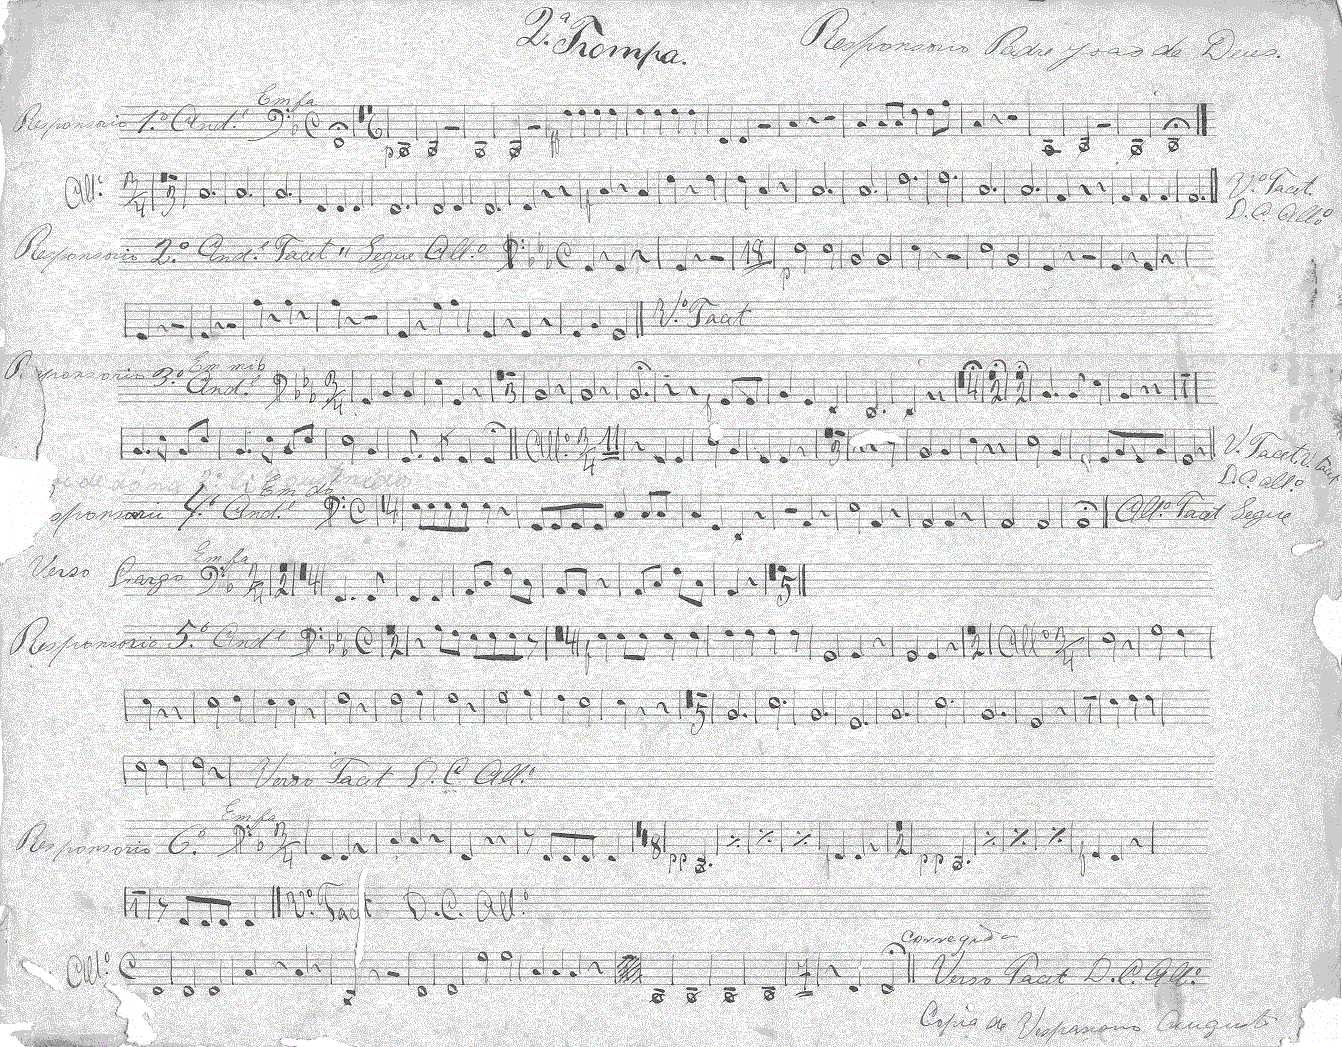 2.ª Trompa. Responsorio Padre João de Deus.
Em fa
Responsorio 1.º And.e C
p ff
All.º 3/4 3 V.º Tacet
D.C. All.º
Responsorio 2.º And.e Tacet " Segue All.º C 18 p
V.º Tacet
Em mib
Responsorio 3.º And.e 3/4 3 4 2 2 1
All.º 3/4 11 3 V. Tacet
D.C. all.º
Em do
4.º And.e C 14 All.º Tacet Segue
Em fa
Verso Largo 3/4 2 4 5
Responsorio 5.º And.e C 2 4 f 2 All.º 3/4
5 1
Verso Tacet D.C. All.º
Em fa
Responsorio 6.º 3/4 8 pp f 2 pp f
1 V.º Tacet D.C. All.º
corregida
All.º C Verso Tacet D.C. All.º
Copia de Vespasiano Augusto